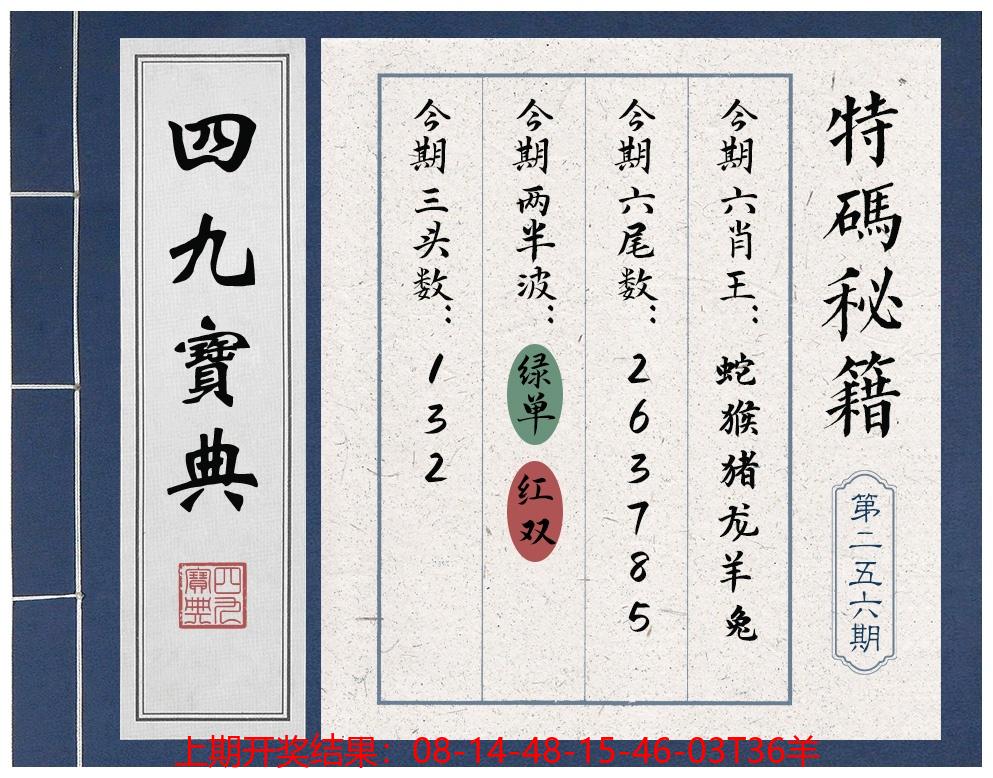 四九寶典
四九寶典
特碼秘籍
第二五六期
今期六肖王：蛇猴猪龙羊兔
今期六尾数：263785
今期两半波：绿单 红双
今期三头数：132
上期开奖结果：08-14-48-15-46-03T36羊